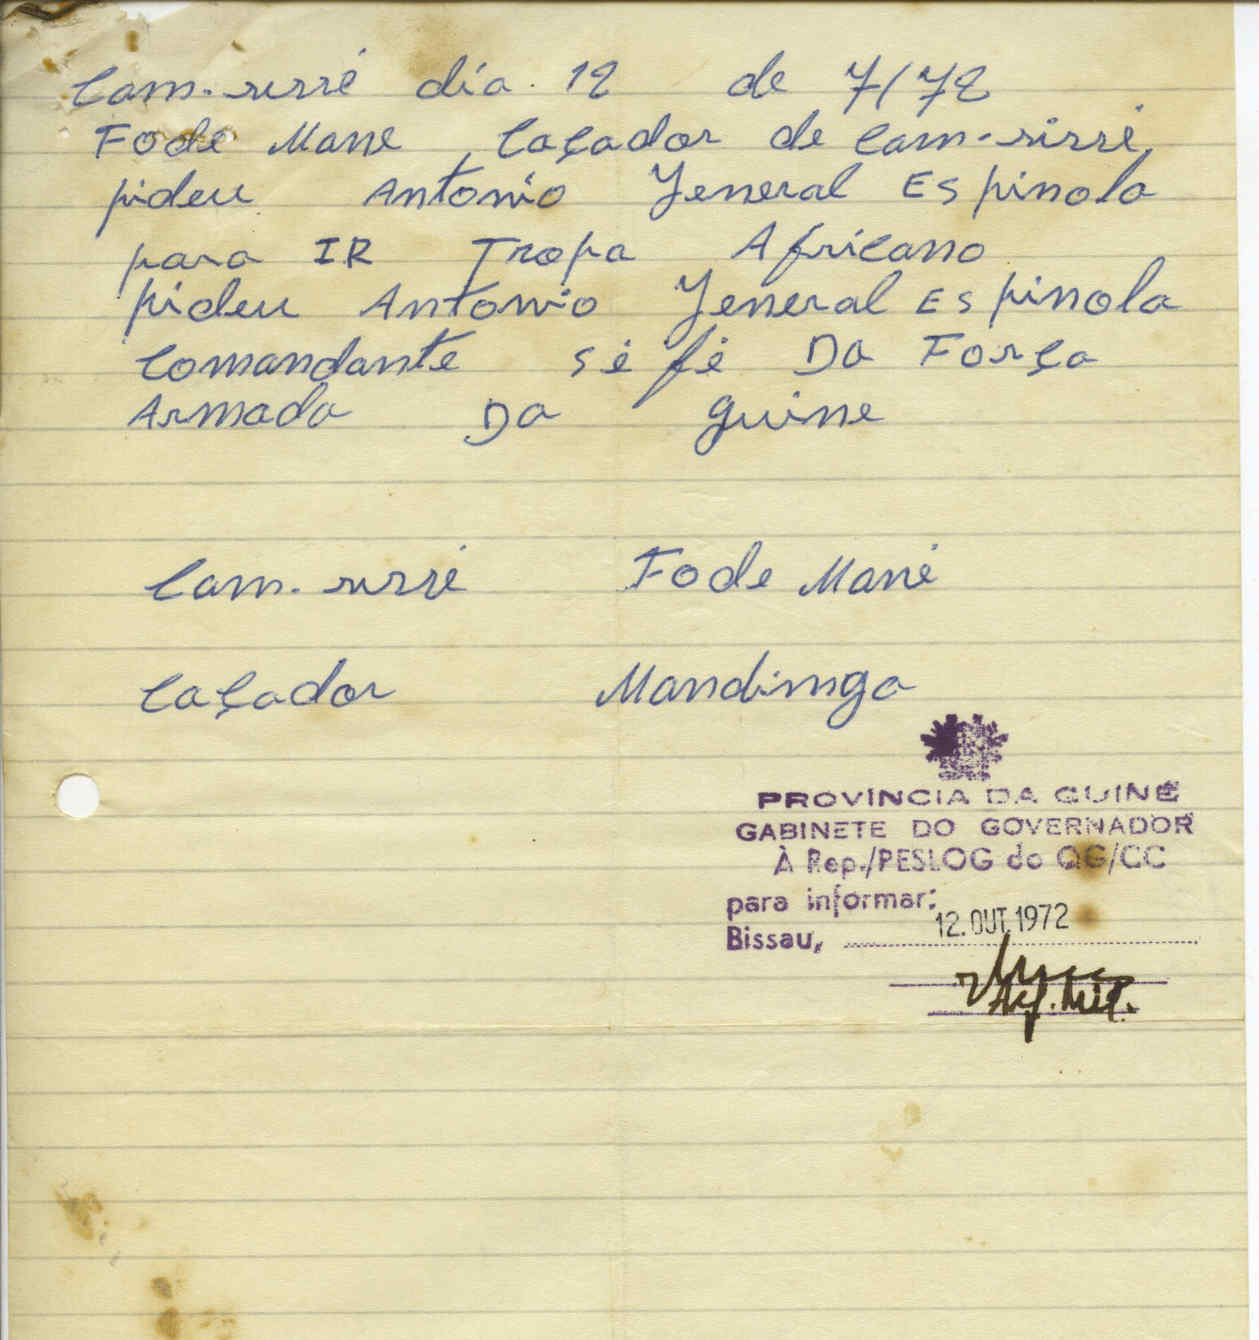 Cam-sirré día 12 de 7/72
Fode Mane, Caçador de Cam-sirré,
pideu Antonio Jeneral Espinola
para IR Tropa Africano
pideu Antonio Jeneral Espinola
Comandante Séfé Da Força
Armada Da guine
Cam-sirré Fode Mané
Caçador Mandimga
PROVÍNCIA DA GUINÉ
GABINETE DO GOVERNADOR
À Rep./PESLOG do QG/CC
para informar:
Bissau, 12.OUT.1972